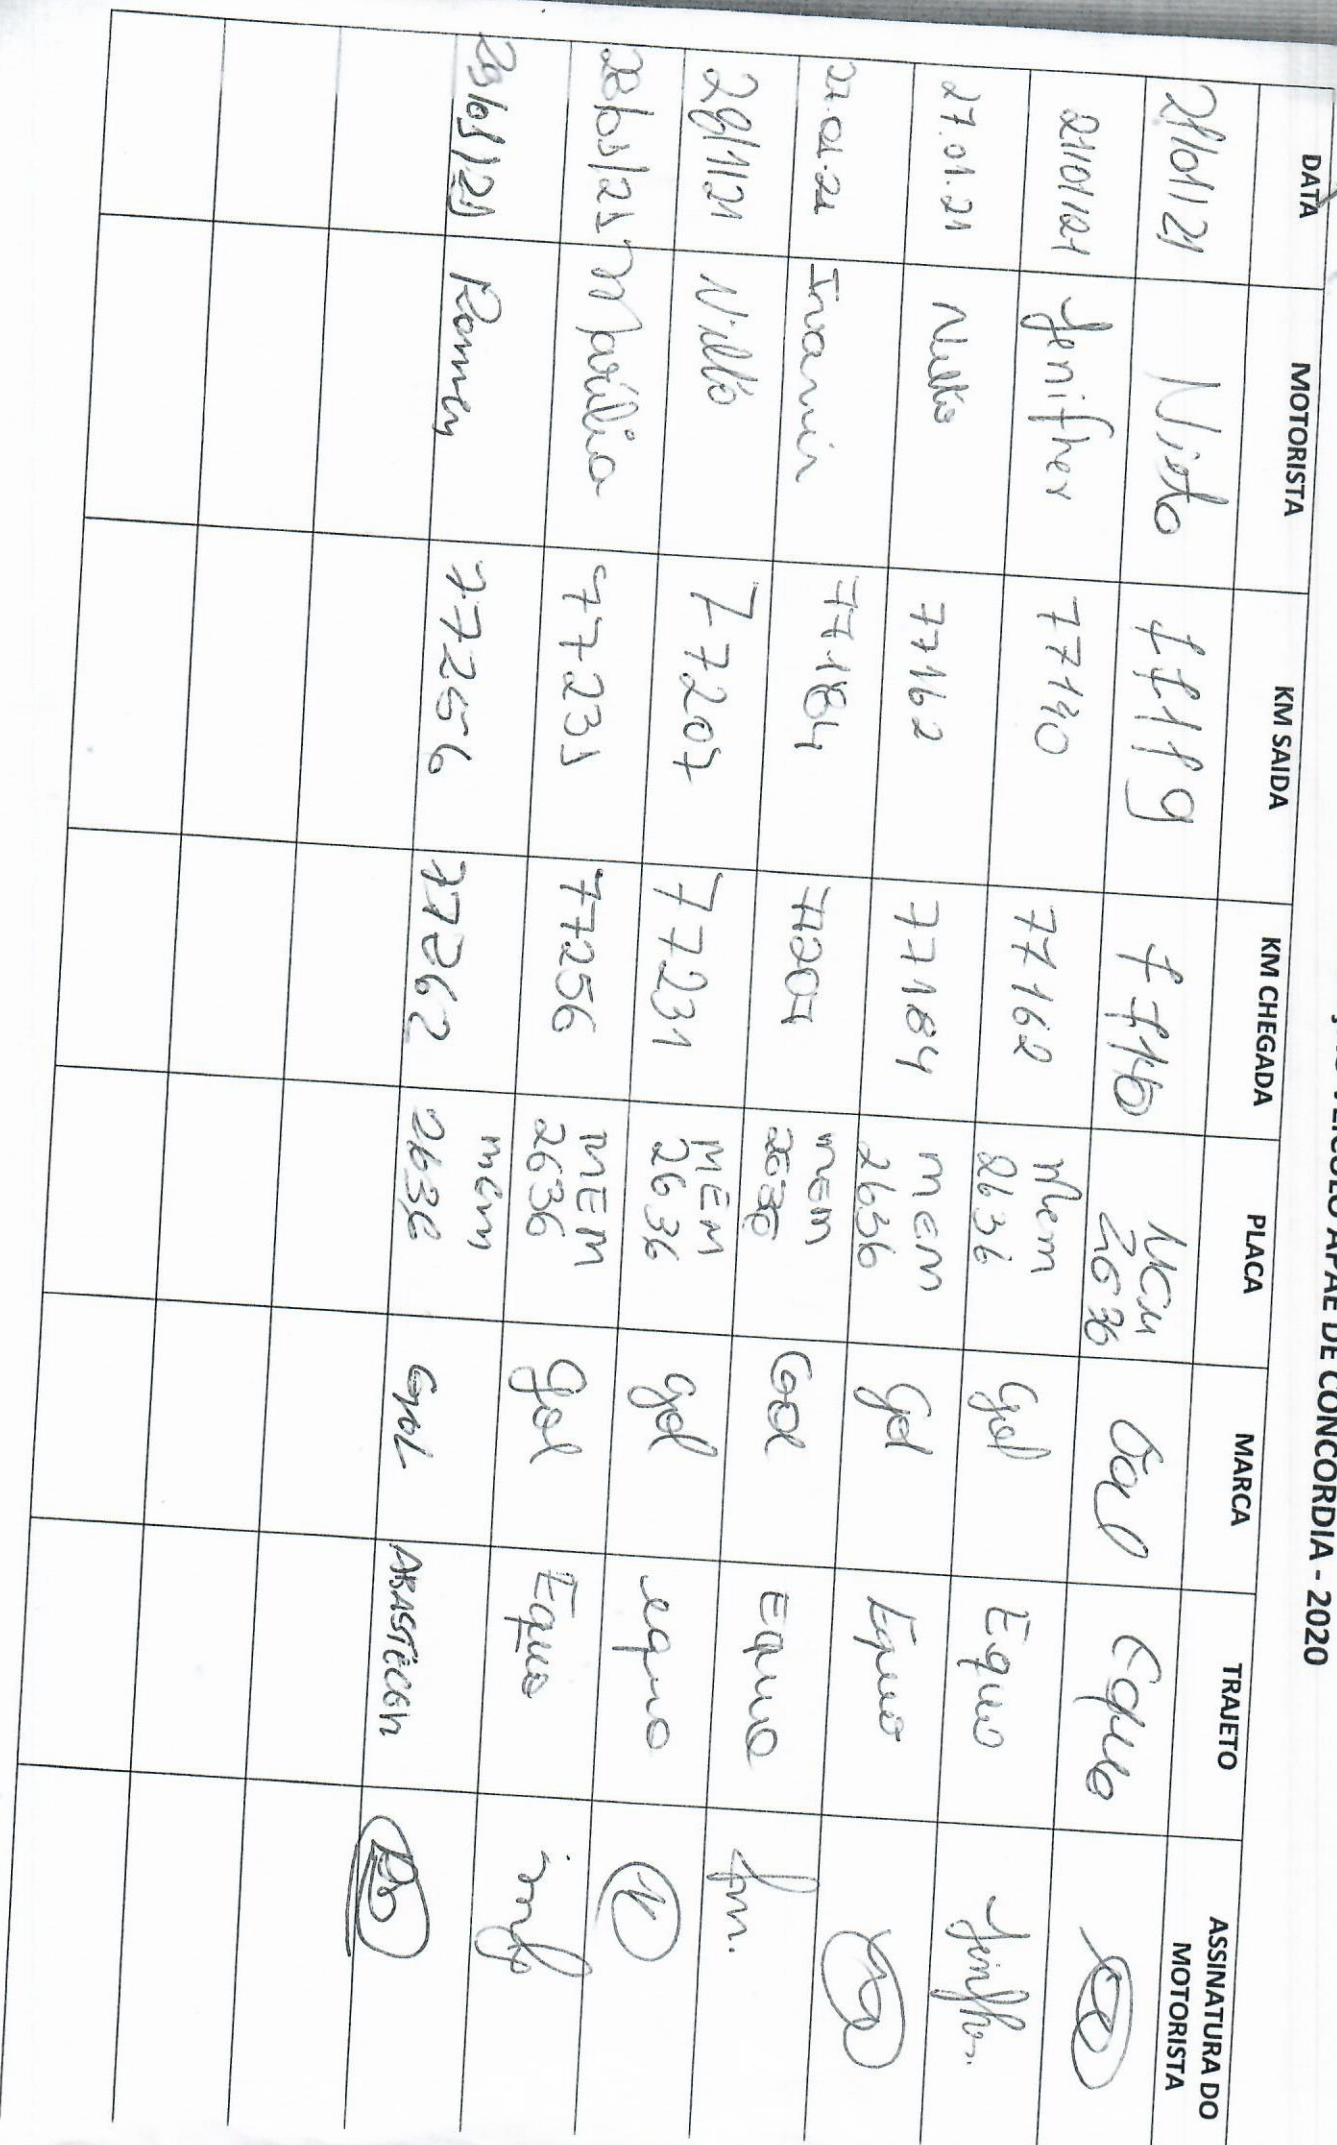 VEICULO APAE DE CONCORDIA - 2020
DATA MOTORISTA KM SAIDA KM CHEGADA PLACA MARCA TRAJETO ASSINATURA DO MOTORISTA
21/01/21 77119 Gol Equo
21/01/21 Jenifher 77140 77162 Mem 2636 Gol Equo Jenifher
27.01.21 77162 77184 MEM 2636 Gol Equo
27.01.21 Ivanir 77184 77207 MEM 2636 Gol Equo
28/1/21 77207 77231 MEM 2636 gol equo
28/01/21 Marilia 77231 77256 MEM 2636 gol Equo
29/01/21 77256 77262 mem 2636 GOL ABASTECER